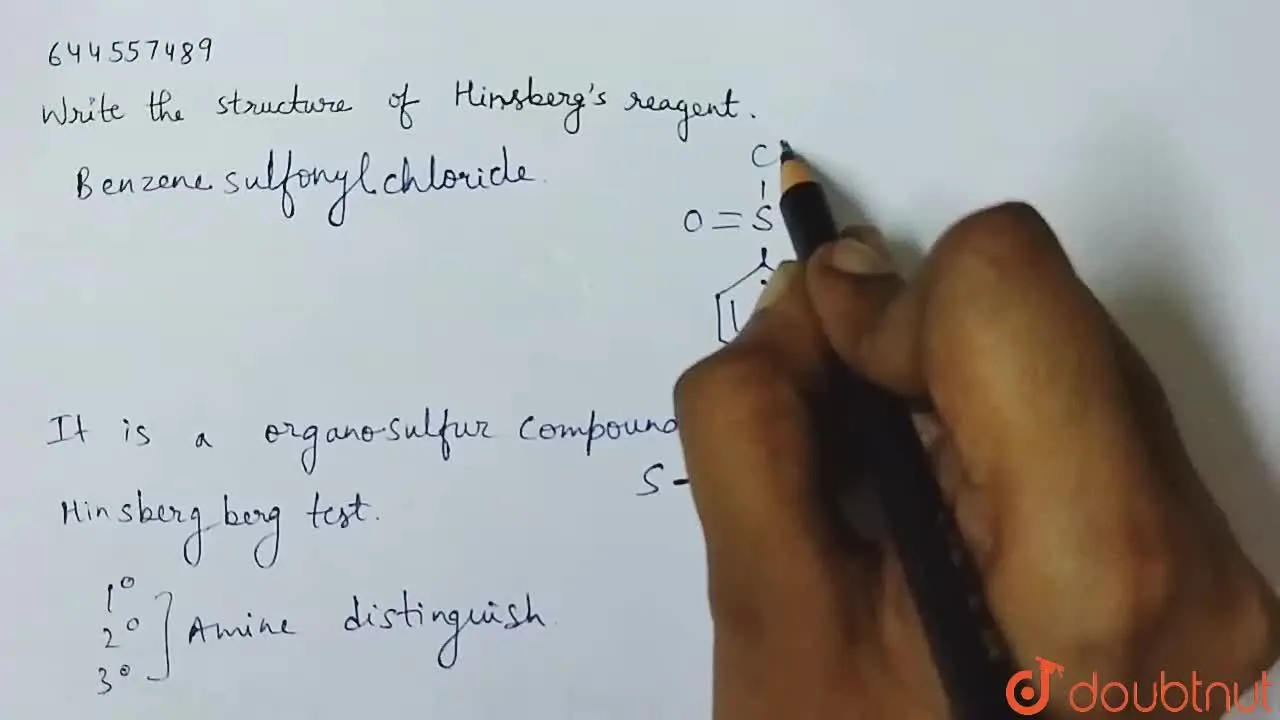 644557489
Write the structure of Hinsberg's reagent.
Benzene sulfonyl chloride.
C
O=S
It is a organosulfur compound
S-
Hinsberg berg test.
1°
2°
3°
Amine distinguish
doubtnut